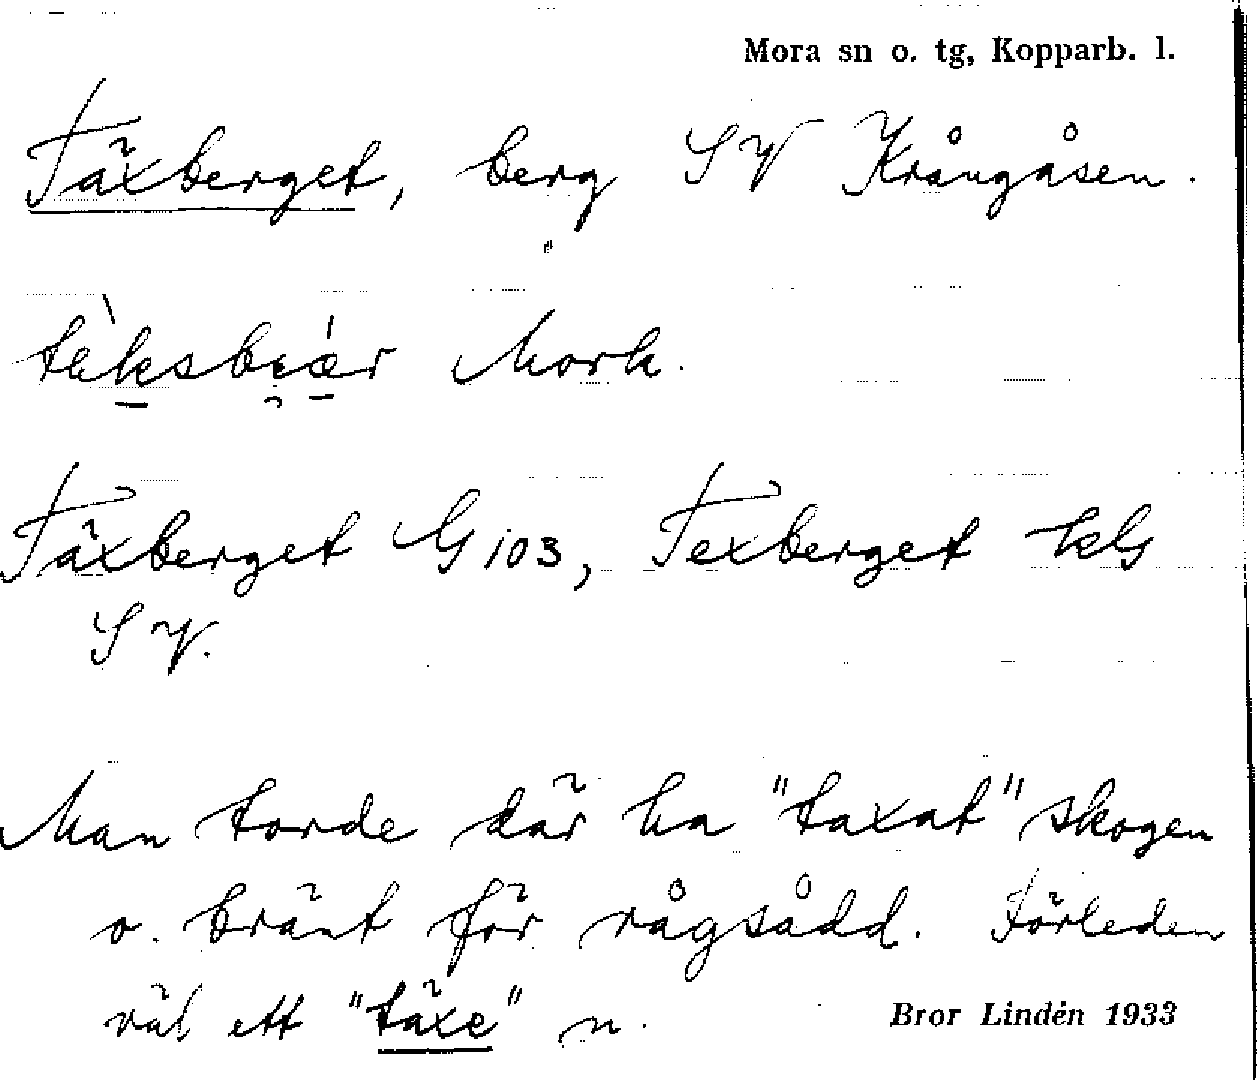 Mora sn o. tg, Kopparb. l.
Täxberget, berg SV Krångåsen.
Mork.
Täxberget G 103, Texberget kG
SV.
Man torde där ha "taxat" skogen
o. bränt för rågsådd. Förleden
väl ett "täxe" n.
Bror Lindén 1933